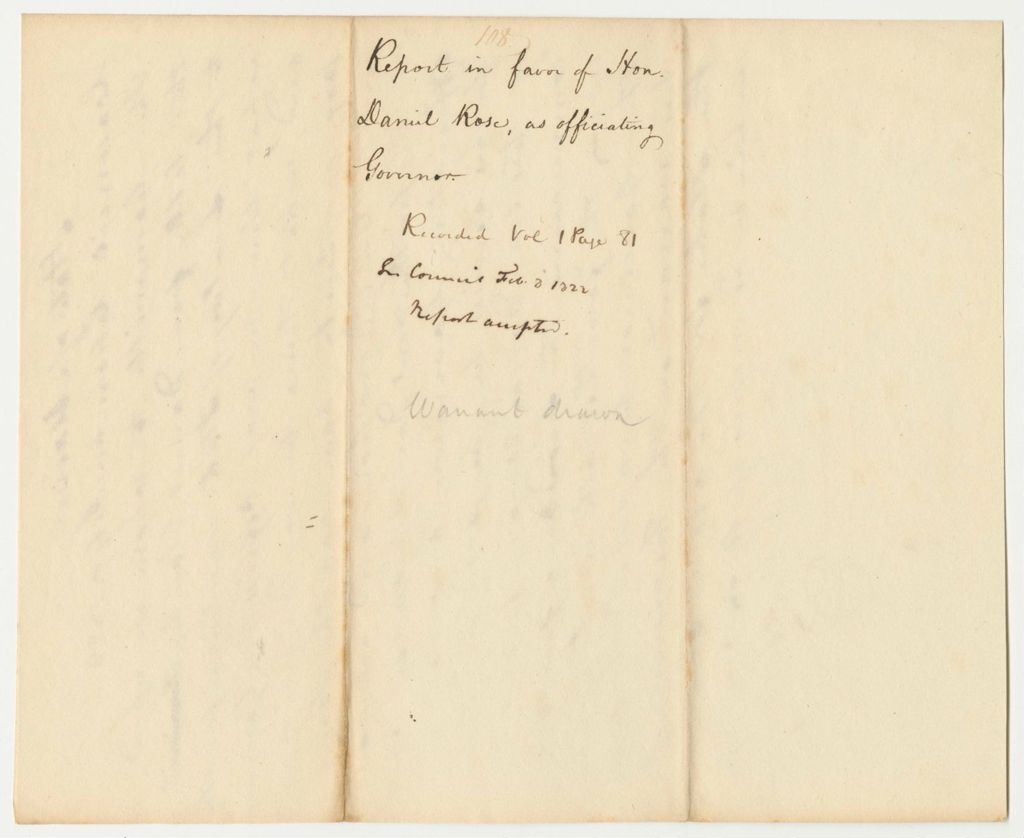 108
Report in favor of Hon.
Daniel Rose, as officiating
Governor.
Recorded Vol 1 Page 81
In Council Feb. 8 1822
Report accepted.
Warrant drawn